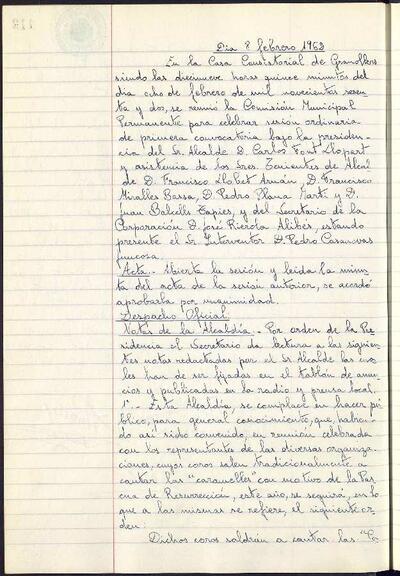 Dia 8 febrero 1962
En la Casa Consistorial de Granollers
siendo las diecinueve horas quince minutos del
dia ocho de febrero de mil novecientos sesen-
ta y dos, se reunió la Comisión Municipal
Permanente para celebrar sesión ordinaria
de primera convocatoria bajo la presiden-
cia del Sr. Alcalde D. Carlos Font Llopart
y asistencia de los Sres. Tenientes de Alcal
de D. Francisco Llobet Arnán, D. Francisco
Miralles Bassa, D. Pedro Plana Martí y D.
Juan Balcells Tapies, y del Secretario de la
Corporación D. José Rierola Alibés, estando
presente el Sr. Interventor D. Pedro Casanovas
Juncosa.
Acta.- Abierta la sesión y leida la minu
ta del acta de la sesión anterior, se acordó
aprobarla por unanimidad.
Despacho Oficial
Notas de la Alcaldía.- Por orden de la Pre
sidencia el Secretario da lectura a las siguien
tes notas redactadas por el Sr. Alcalde las cua
les han de ser fijadas en el tablón de anun
cios y publicadas en la radio y prensa local.
1º.- Esta Alcaldía, se complace en hacer pú
blico, para general conocimiento, que, habien
do asi sido convenido, en reunión celebrada
con los representantes de las diversas organiza
ciones, cuyos coros salen tradicionalmente a
cantar las "caramelles" con motivo de la Pas
cua de Resurrección, este año, se seguirá, en lo
que a las mismas se refiere, el siguiente or-
den:
Dichos coros saldrán a cantar las "Ca